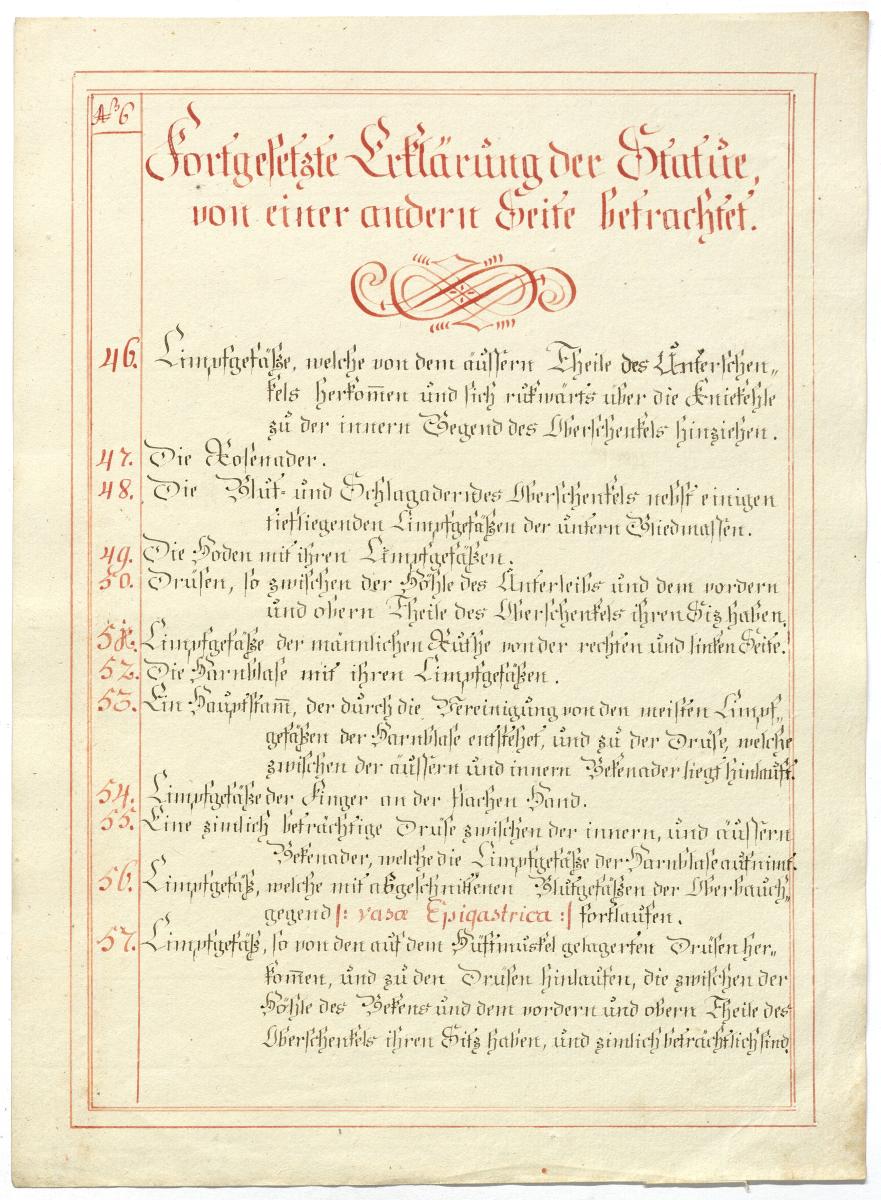 No 6
Fortgesetzte Erklärung der Statue,
von einer andern Seite betrachtet.
46. Limpfgefäße, welche von dem äussern Theile des Unterschen„
kels herkom̅en und sich rukwärts über die Kniekehle
zu der innern Gegend des Oberschenkels hinziehen.
47. Die Rosenader.
48. Die Blut- und Schlagadern des Oberschenkels nebst einigen
tiefliegenden Limpfgefäßen der untern Gliedmassen.
49. Die Hoden mit ihren Limpfgefäßen.
50. Drüsen, so zwischen der Höhle des Unterleibs und dem vordern
und obern Theile des Oberschenkels ihren Siz haben.
51. Limpfgefäße der männlichen Ruthe von der rechten und linken Seite.
52. Die Harnblase mit ihren Limpfgefäßen.
53. Ein Hauptstam̅, der durch die Vereinigung von den meisten Limpf„
gefäßen der Harnblase entstehet, und zu der Drüse, welche
zwischen der äussern und innern Bekenader liegt hinlauft.
54. Limpfgefäße der Finger an der flachen Hand.
55. Eine zimlich beträchtige Drüse zwischen der innern, und äussern
Bekenader, welche die Limpfgefäße der Harnblase aufnimt.
56. Limpfgefäß, welche mit abgeschnittenen Blutgefäßen der Oberbauch„
gegend |: vasa Epigastrica :| fortlaufen.
57. Limpfgefäß, so von den auf dem Hüftmuskel gelagerten Drüsen her„
kom̅en, und zu den Drüsen hinlaufen, die zwischen der
Höhle des Bekens und dem vordern und obern Theile des
Oberschenkels ihren Sitz haben, und zimlich beträchtlich sind.